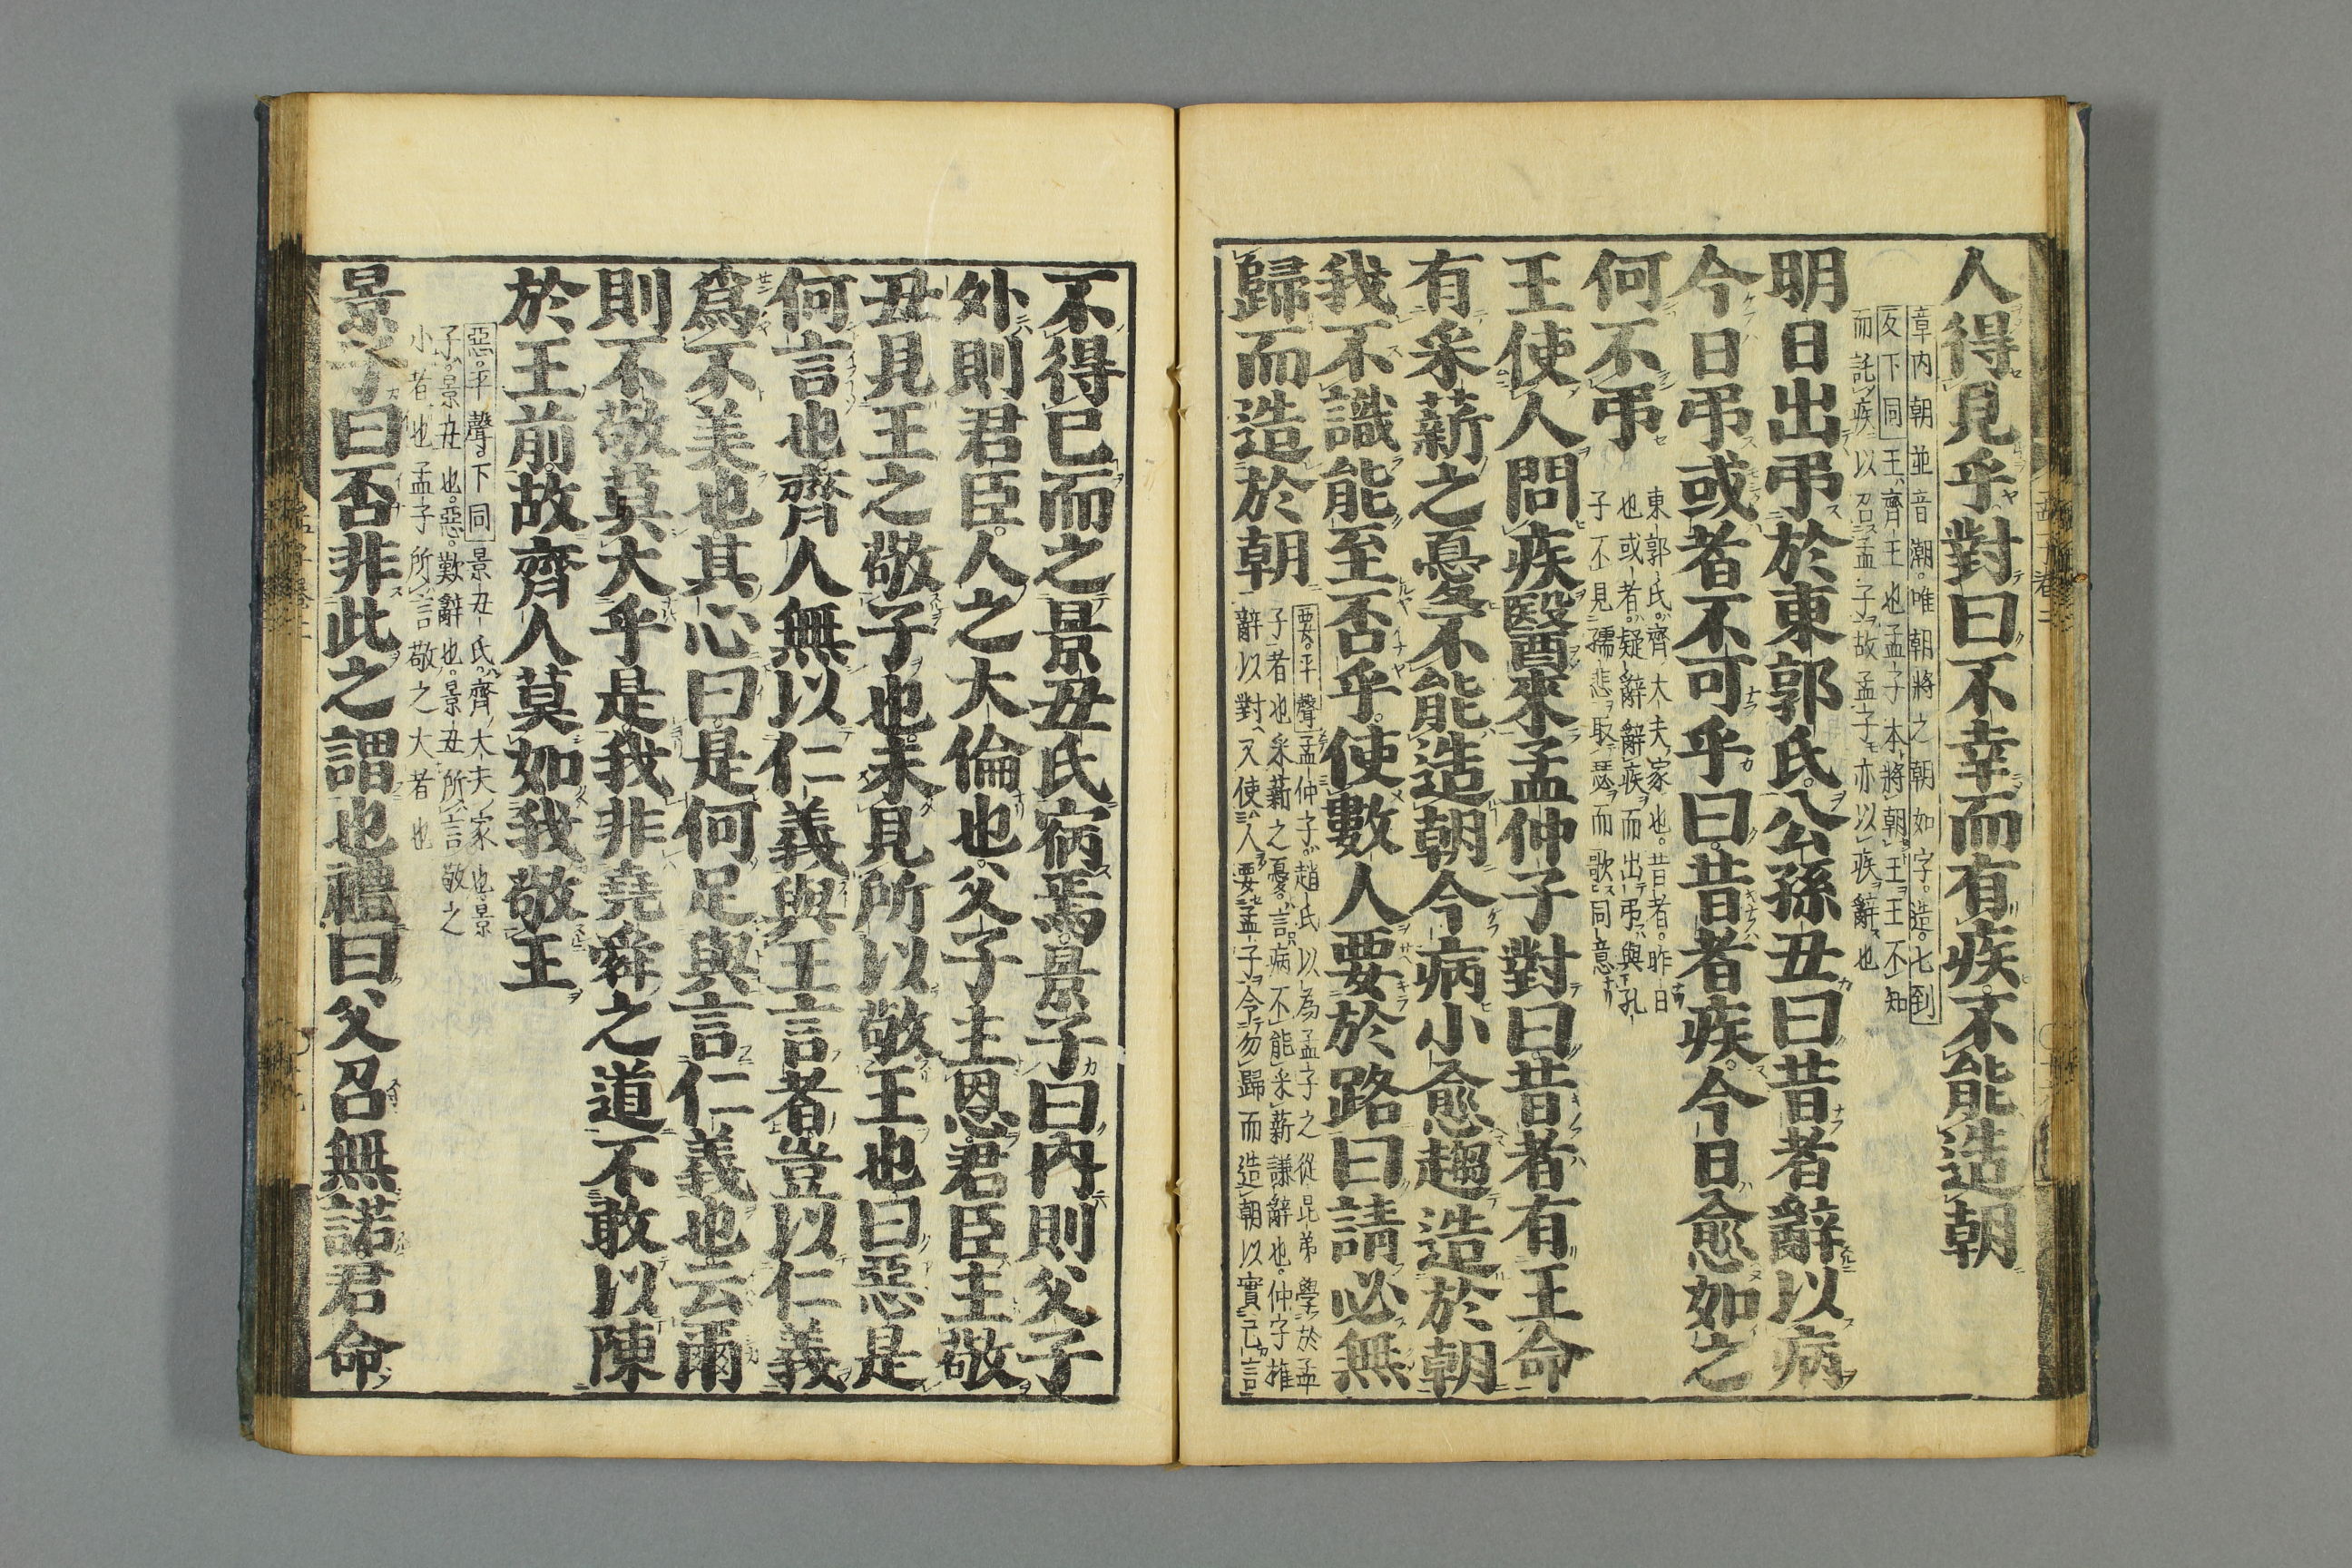 人得見乎對曰不幸而有疾不能造朝
章内朝並音潮。唯朝將之朝如字。造。七到
反下同王、齊王也孟子本將朝王王不知
而託疾以召孟子故孟子亦以疾辭也
明日出弔於東郭氏。公孫丑曰昔者辭以病
今日弔或者不可乎曰昔者疾。今日愈如之
何不弔
東郭氏。齊大夫家也。昔者。昨日
也或者。疑辭辭疾而出弔。與孔
子不見孺悲取瑟而歌同意
王使人問疾醫來孟仲子對曰昔者有王命
有采薪之憂不能造朝今病小愈趨造於朝
我不識能至否乎。使數人要於路曰請必無
歸而造於朝
要。平聲孟仲子。趙氏以為孟子之從昆弟學於孟
子者也采薪之憂。言病不能采薪謙辭也。仲子權
辭以對又使人要孟子令勿歸而造朝以實己言
不得已而之景丑氏宿焉。景子曰内則父子
外則君臣。人之大倫也。父子主恩。君臣主敬
丑見王之敬子也。未見所以敬王也曰惡是
何言也。齊人無以仁義與王言者豈以仁義
爲不美也。其心曰。是何足與言仁義也云爾
則不敬莫大乎是我非堯舜之道不敢以陳
於王前。故齊人莫如我敬王
惡。平聲下同景丑氏。齊大夫家也。景
子。景丑也。惡。歎辭也。景丑所言敬之
小者也孟子所言敬之大者也
景子曰否非此之謂也禮曰父召無諾君命